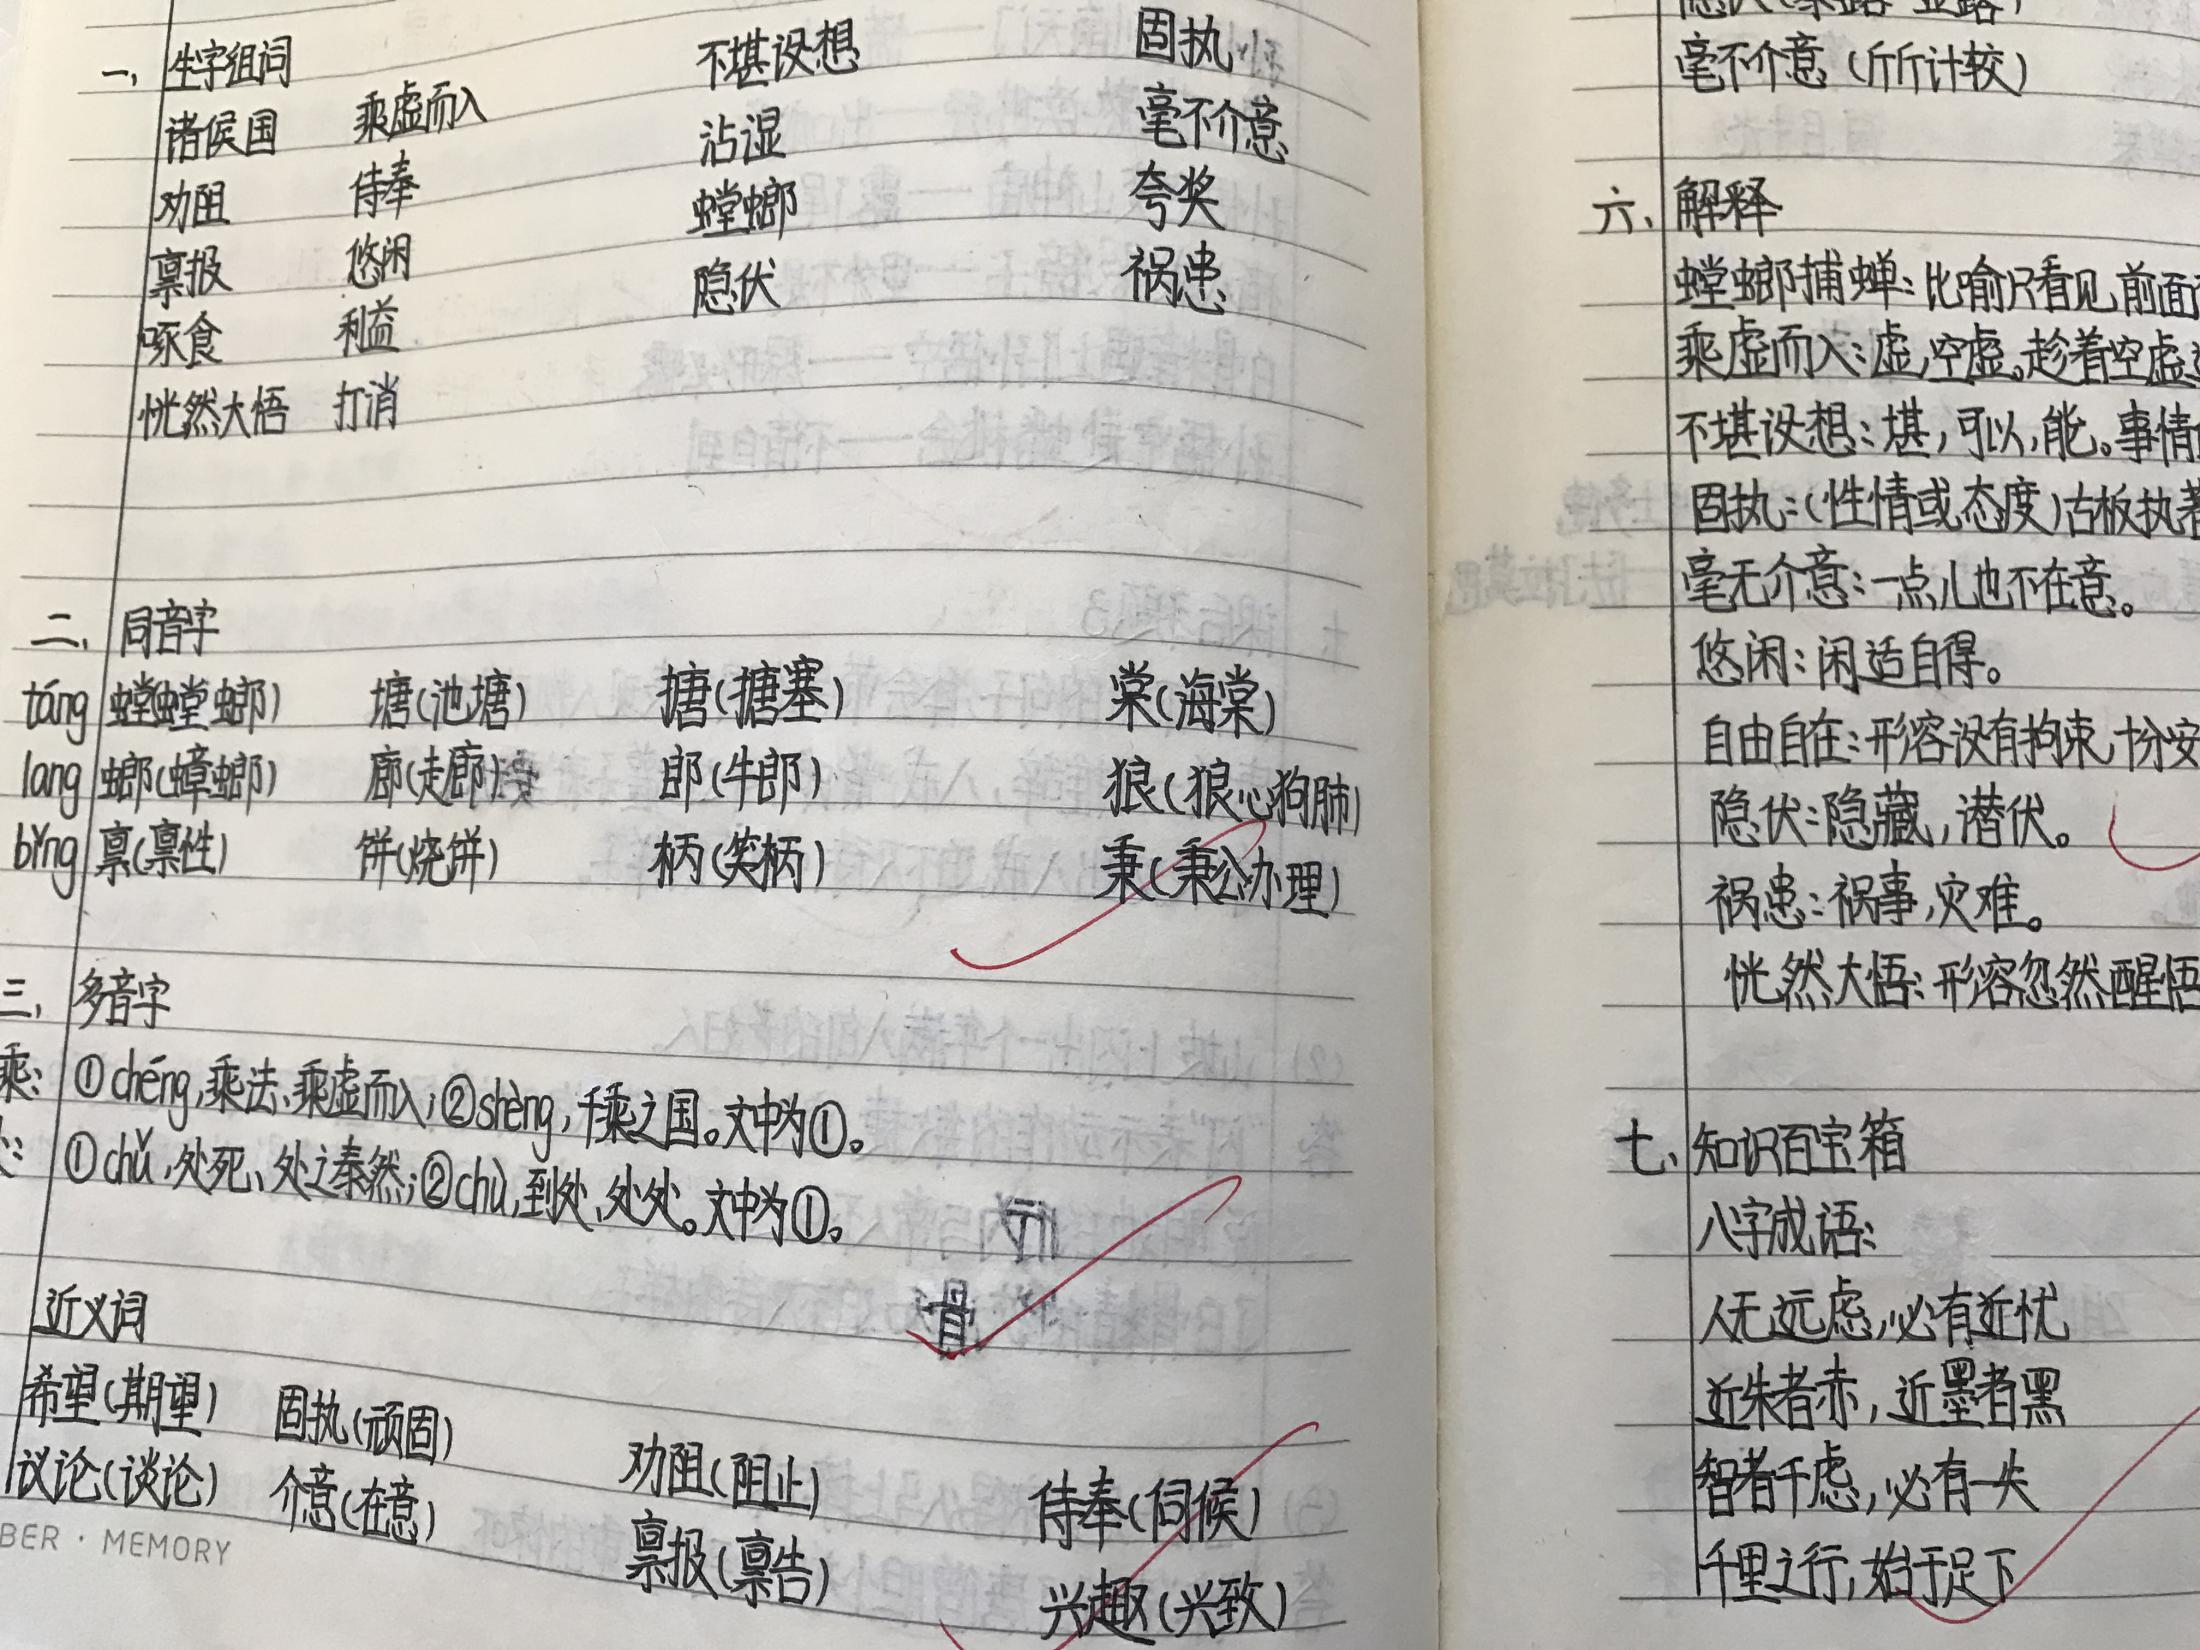 一、生字组词 不堪设想 固执
诸侯国 乘虚而入 沾湿 毫不介意
劝阻 侍奉 螳螂 夸奖
禀报 悠闲 隐伏 祸患
啄食 利益
恍然大悟 打消
二、同音字
táng 螳(螳螂) 塘(池塘) 搪(搪塞) 棠(海棠)
lang 螂(蟑螂) 廊(走廊) 郎(牛郎) 狼(狼心狗肺)
bǐng 禀(禀性) 饼(烧饼) 柄(笑柄) 秉(秉公办理)
三、多音字
乘: ①chéng,乘法、乘虚而入;②shèng,千乘之国。文中为①。
①chǔ,处死、处之泰然;②chù,到处、处处。文中为①。
近义词
希望(期望) 固执(顽固) 劝阻(阻止) 侍奉(伺候)
议论(谈论) 介意(在意) 禀报(禀告) 兴趣(兴致)
BER · MEMORY
毫不介意(斤斤计较)
六、解释
螳螂捕蝉:比喻只看见前面
乘虚而入:虚,空虚。趁着空虚
不堪设想:堪,可以,能。事情
固执:(性情或态度)古板执着
毫无介意:一点儿也不在意。
悠闲:闲适自得。
自由自在:形容没有拘束,十分安
隐伏:隐藏,潜伏。
祸患:祸事,灾难。
恍然大悟:形容忽然醒悟
七、知识百宝箱
八字成语:
人无远虑,必有近忧
近朱者赤,近墨者黑
智者千虑,必有一失
千里之行,始于足下